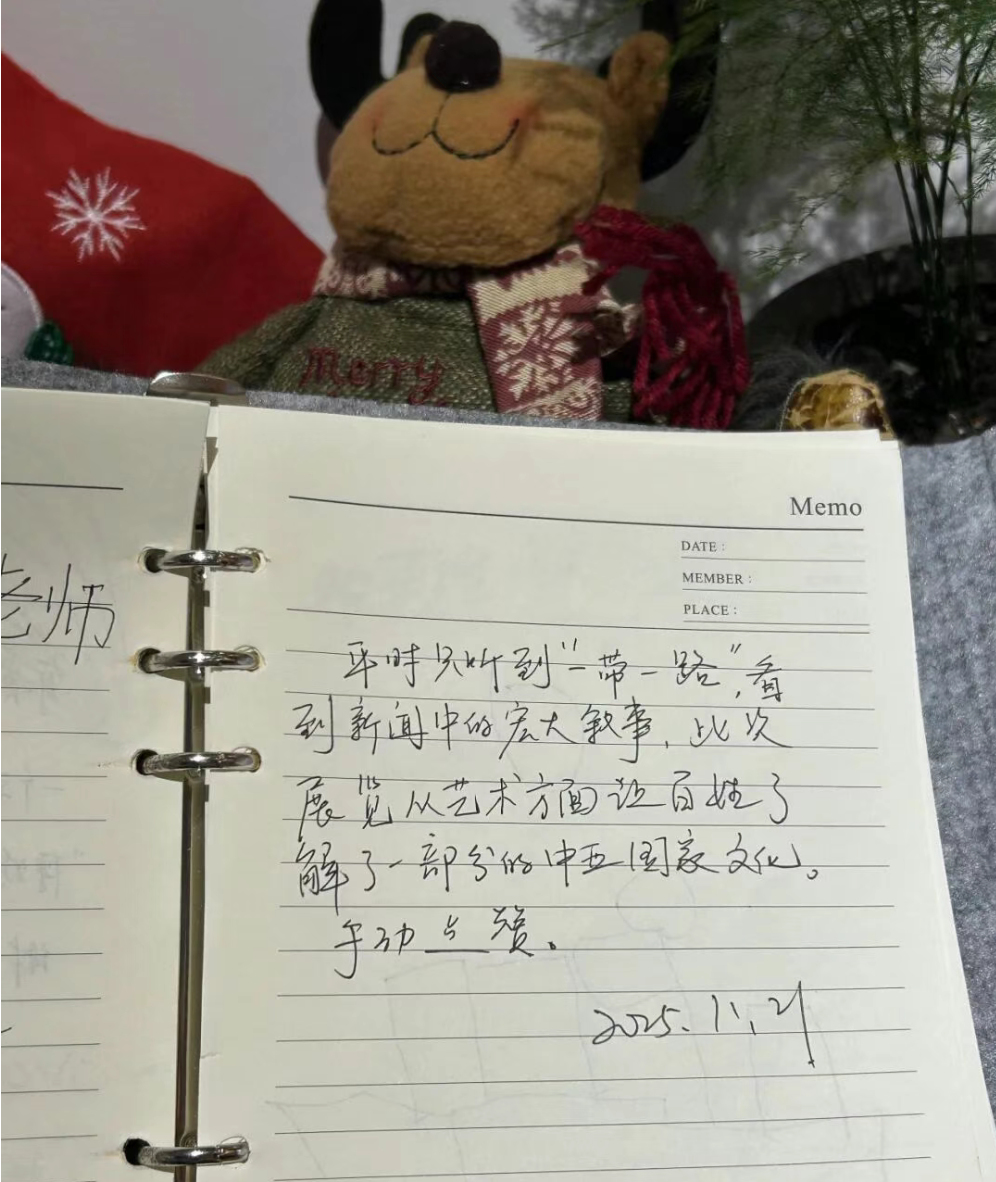 Merry
Memo
DATE :
MEMBER :
PLACE :
老师
平时只听到“一带一路”,看
到新闻中的宏大叙事,此次
展览从艺术方面让百姓了
解了一部分的中亚国家文化。
手动点赞.
2025.11.21